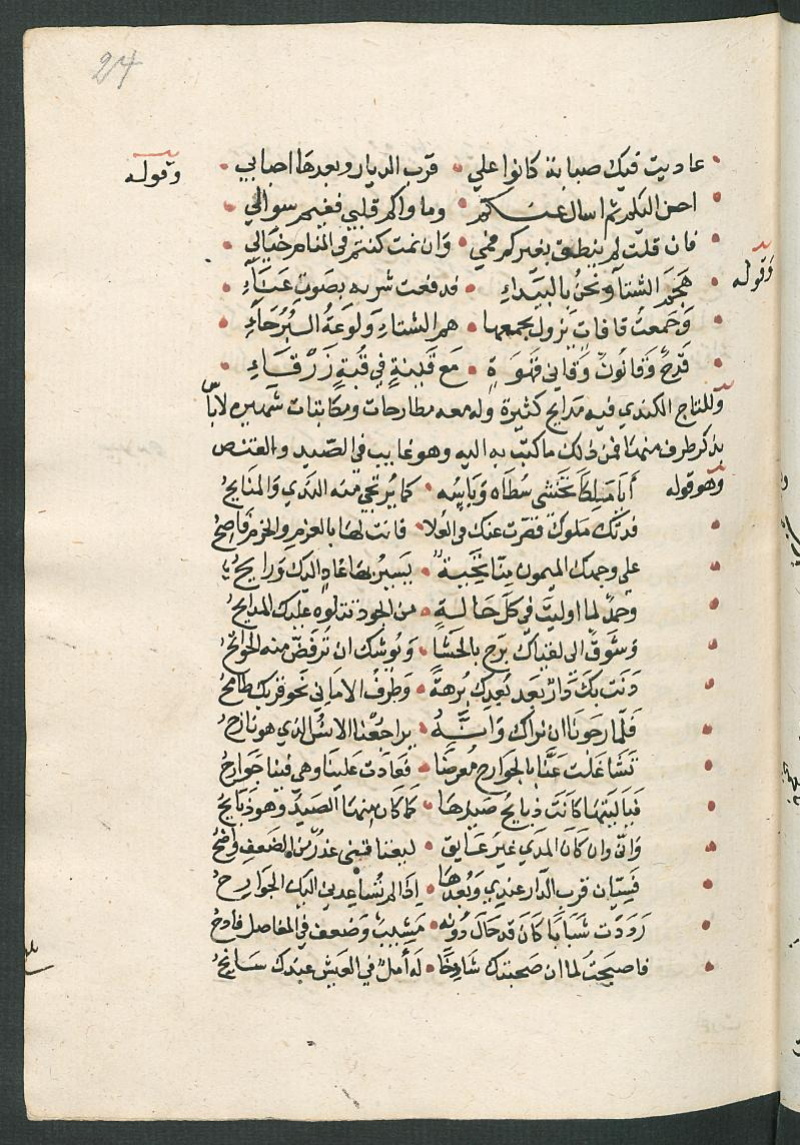 24
عاديت فيك صبابة كانوا علي • قرب الديار وبعدها احبابي • وقوله
احسن اليكم ثم اسال عنكم • وما واكم قلبي ففيم سوالي
فان قلت لم ينطق بغيركم فمي • وان نمت كنتم في المنام خيالي • وقوله
هَجَمَ الشتآ ونحنُ بالبيداءِ • فدفعت شره بصَوتِ غنآءِ
وَجَمعتُ قافاتٍ يزول بجمعها • هم الشتاءِ ولوعةُ البُرَحَآءِ
قدحٌ وَقانونٌ وَقاني قهوَةٍ • مَع قَينةٍ في قُبةٍ زَرْقَاءِ
وللتاج الكندي فيه مدايح كثيرة وله معه مطارحات ومكاتبات شهيره لابأ
بذكر طرف منها فمن ذلك ما كتب به اليه وهو غايب في الصّيد والقنص
وهو قوله أيا ملكًا تخشى سُطَاه وَبَاسُه • كما يُرتجي منه الندي والمنايحُ
فدتك ملوك قصرت عنك في العُلا • فانت لها بالعزم والحزم فاضحُ
علي وجهك الميمون منا تحيةٌ • يسير بها غادٍ اليك وَرايحُ
وحمدٌ لما اوليت في كل حالةٍ • من الجود تتلوه عليك المدايحُ
وَشوقٌ الى لقياك برّح بالحَشا • وَيوشك ان ترفضّ منه الجوانحُ
دَنت بكَ دارٌ بعد بُعدك برهةً • وَطرفُ الاماني نحو قربك طامحُ
فلمّا رجونا ان نراك وَانهُ • يراجعُنا الانسُ الذي هو نازحُ
تَشاغلت عنّا بالجوارح مُعرضًا • فعادت علينا وهي فينا جوارحُ
فيا ليتها كانت ذبايحُ صيدها • كما كان منها الصيدُ وهو ذبايحُ
وَانّي وان كان المدي غيرَ عَايق • لبعنا فتنى عذرٌ من الضعفِ واضحُ
فسيّان قرب الدّار عندي وَبُعدها • اذا لم تُساعدني اليك الجوارحُ
رَددت شَبابًا كان قد حَال دُونه • مشيبٌ وَضعف في المفاصل فادحُ
فاصبحتُ لما ان صحبتك شارخًا • له أملٌ في العَيش عندك سَانحُ